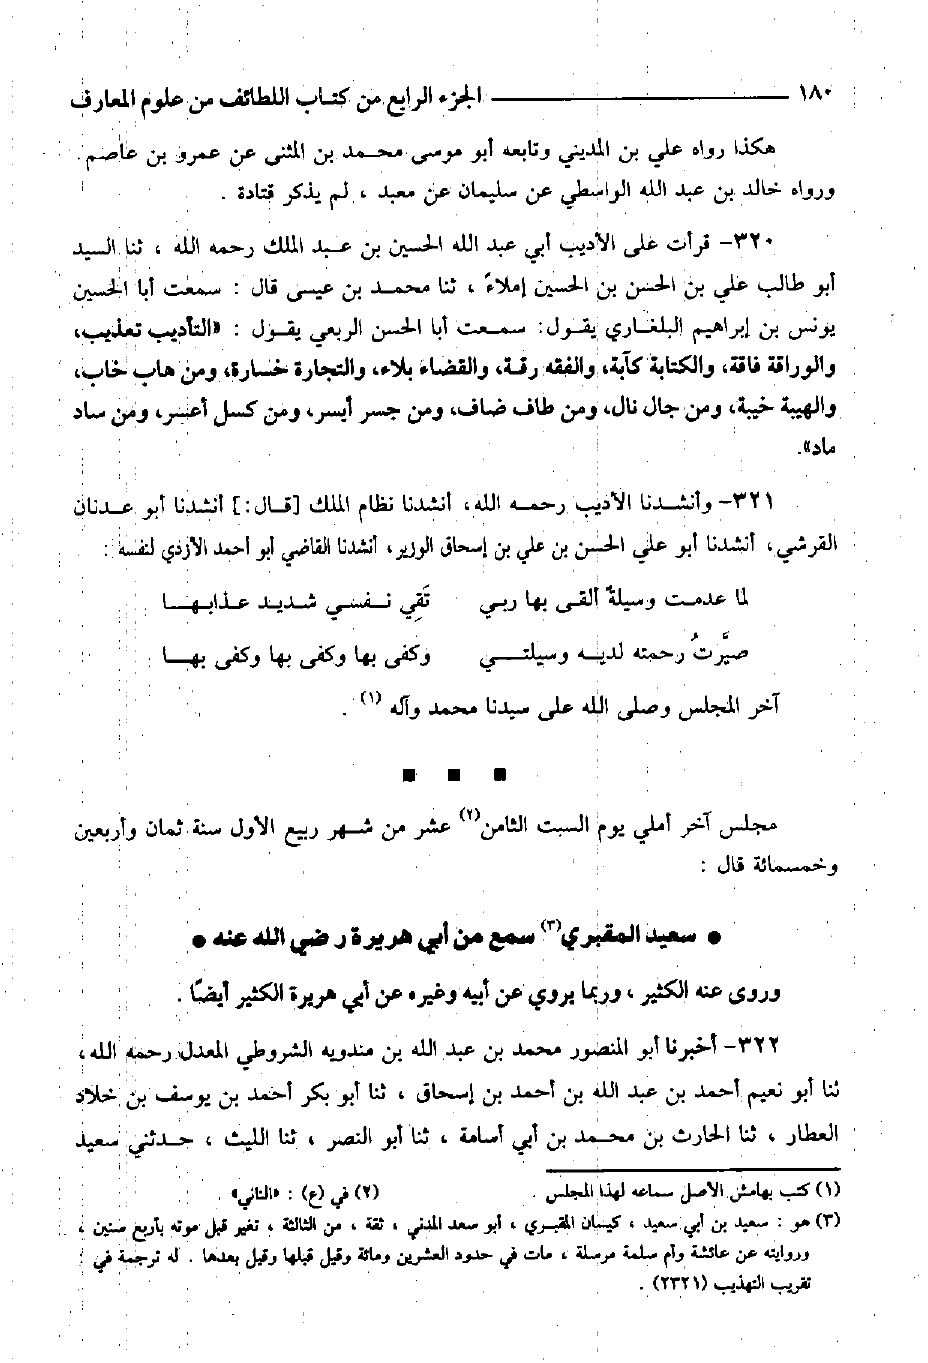 ١٨٠ الجزء الرابع من كتاب اللطائف من علوم المعارف
هكذا رواه علي بن المديني وتابعه أبو موسى محمد بن المثنى عن عمرو بن عاصم .
ورواه خالد بن عبد الله الواسطي عن سليمان عن معبد ، لم يذكر قتادة .
٣٢٠- قرأت على الأديب أبي عبد الله الحسين بن عبد الملك رحمه الله ، ثنا السيد
أبو طالب علي بن الحسن بن الحسين إملاءً ، ثنا محمد بن عيسى قال : سمعت أبا الحسين
يونس بن إبراهيم البلغاري يقول: سمعت أبا الحسن الربعي يقول : «التأديب تعذيب،
والوراقة فاقة، والكتابة كآبة، والفقه رقة، والقضاء بلاء، والتجارة خسارة، ومن هاب خاب،
والهيبة خيبة، ومن جال نال، ومن طاف ضاف، ومن جسر أيسر، ومن كسل أعسر، ومن ساد
ماد».
٣٢١- وأنشدنا الأديب رحمه الله، أنشدنا نظام الملك [قال:] أنشدنا أبو عدنان
القرشي، أنشدنا أبو علي الحسن بن علي بن إسحاق الوزير، أنشدنا القاضي أبو أحمد الأزدي لنفسه :
لما عدمت وسيلةً ألقى بها ربي تَقِي نفسي شديد عذابها
صيَّرتُ رحمته لديه وسيلتي وكفى بها وكفى بها وكفى بها
آخر المجلس وصلى الله على سيدنا محمد وآله (١) .
مجلس آخر أملي يوم السبت الثامن(٢) عشر من شهر ربيع الأول سنة ثمان وأربعين
وخمسمائة قال :
● سعيد المقبري(٣) سمع من أبي هريرة رضي الله عنه ●
وروى عنه الكثير ، وربما يروي عن أبيه وغيره عن أبي هريرة الكثير أيضًا .
٣٢٢- أخبرنا أبو المنصور محمد بن عبد الله بن مندويه الشروطي المعدل رحمه الله،
ثنا أبو نعيم أحمد بن عبد الله بن أحمد بن إسحاق ، ثنا أبو بكر أحمد بن يوسف بن خلاد
العطار ، ثنا الحارث بن محمد بن أبي أسامة ، ثنا أبو النصر ، ثنا الليث ، حدثني سعيد
(١) كتب بهامش الأصل سماعه لهذا المجلس . (٢) في (ع) : «الثاني» .
(٣) هو : سعيد بن أبي سعيد ، كيسان المقبري ، أبو سعد المدني ، ثقة ، من الثالثة ، تغير قبل موته بأربع سنين ،
وروايته عن عائشة وأم سلمة مرسلة ، مات في حدود العشرين ومائة وقيل قبلها وقيل بعدها . له ترجمة في :
تقريب التهذيب (٢٣٢١) .